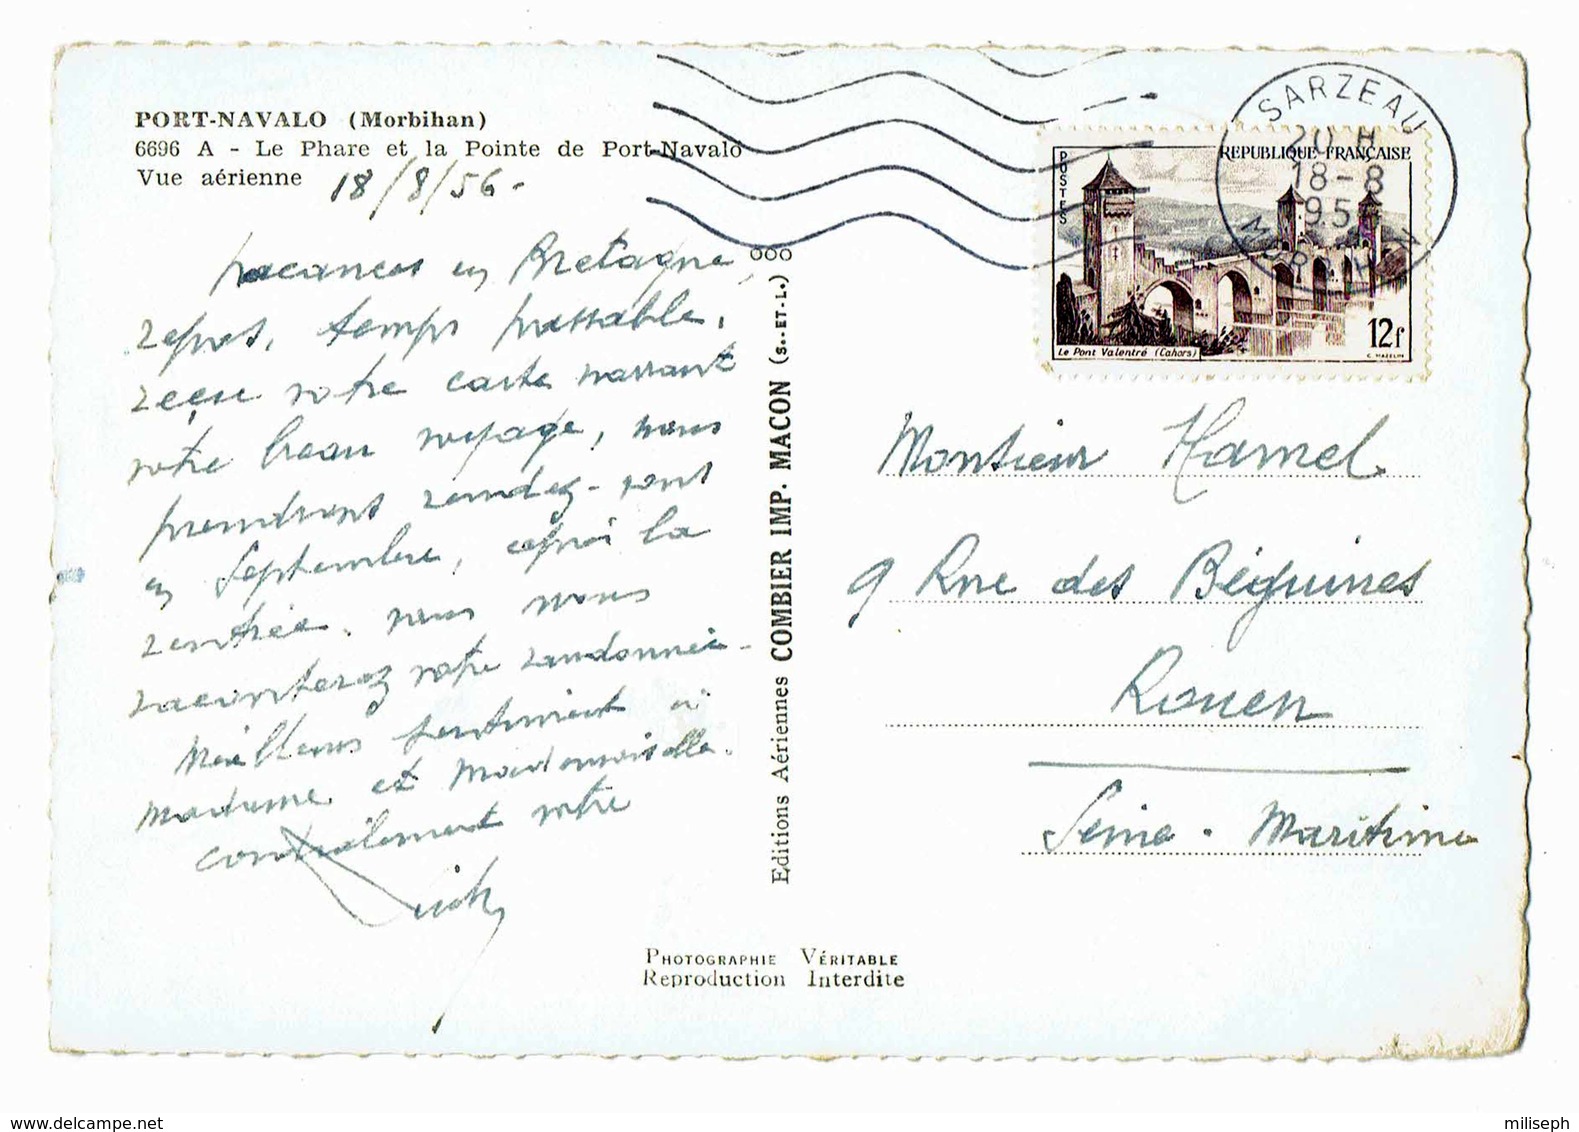 PORT-NAVALO (Morbihan)
6696 A - Le Phare et la Pointe de Port-Navalo
Vue aérienne 18/8/56-
vacances en Bretagne,
repos, temps passable,
reçu votre carte narrant
votre beau voyage, nous
prendrons rendez-vous
en Septembre, après la
rentrée. vous nous
raconterez votre randonnée.
Meilleurs sentiments à
Madame et Mademoiselle.
cordialement votre
Editions Aériennes COMBIER IMP. MACON (S.-ET-L.)
PHOTOGRAPHIE VÉRITABLE
Reproduction Interdite
SARZEAU
20 H
18-8
MORBIHAN
POSTES
REPUBLIQUE FRANÇAISE
Le Pont Valentré (Cahors)
12f
C. MAZELIN
Monsieur Hamel
9 Rue des Béguines
Rouen
Seine-Maritime
www.delcampe.net
miliseph